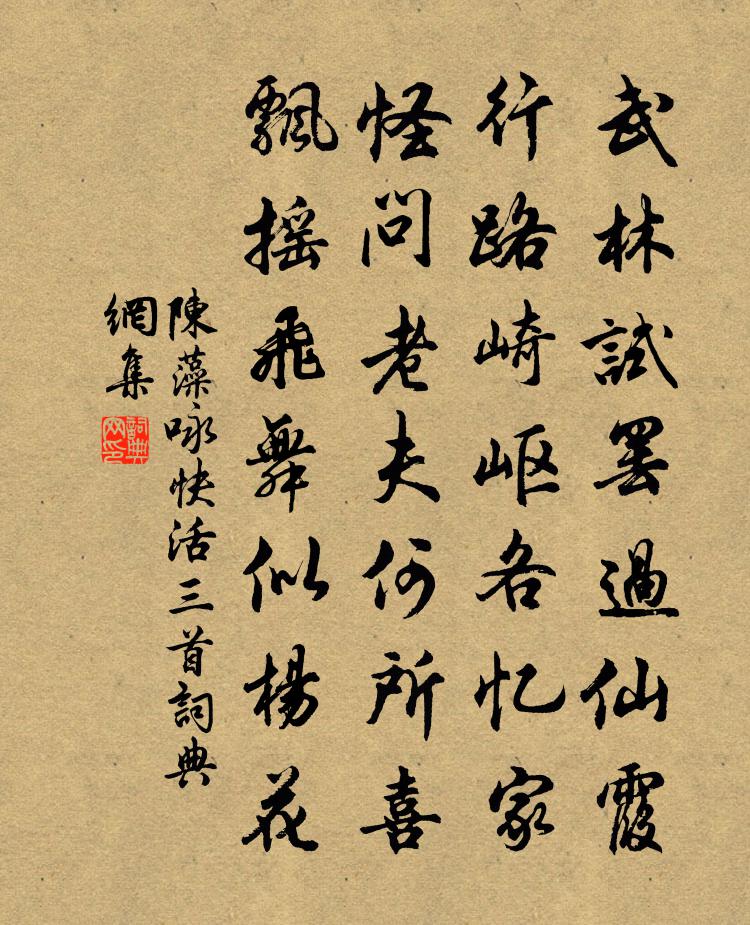 武林試罢過仙霞
行路崎岖各忆家
怪問老夫何所喜
飄摇飛舞似楊花
陳藻咏快活三首詞典
網集
詞典
网印